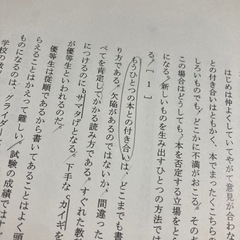 はじめは仲よくしていてやがて意見が合わな
との付き合いはともかく、本でまったくこちらの
しろいものでも、どこかに不満がおこる。その
この場合はどうしても、本を否定する立場をと
になる。新しいものを生み出すひとつの方法では
る。［１］
もうひとつの本との付き合いは、どこまでも書
り方である。欠陥があるのではないか、間違った
べてを肯定してかかる読み方である。すぐれた教
につけるのにもサマタげとなる。下手な、カイギを
が優等生といわれるのだ。
優等生は従順であるから書いてあることはよく頭
らえることはかえって難しい。試験の成績ではす
ものになるのは、グライダー
学校の